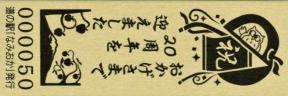 祝
おかげさまで
20周年を
迎えました
道の駅「なみおか」発行
0000050